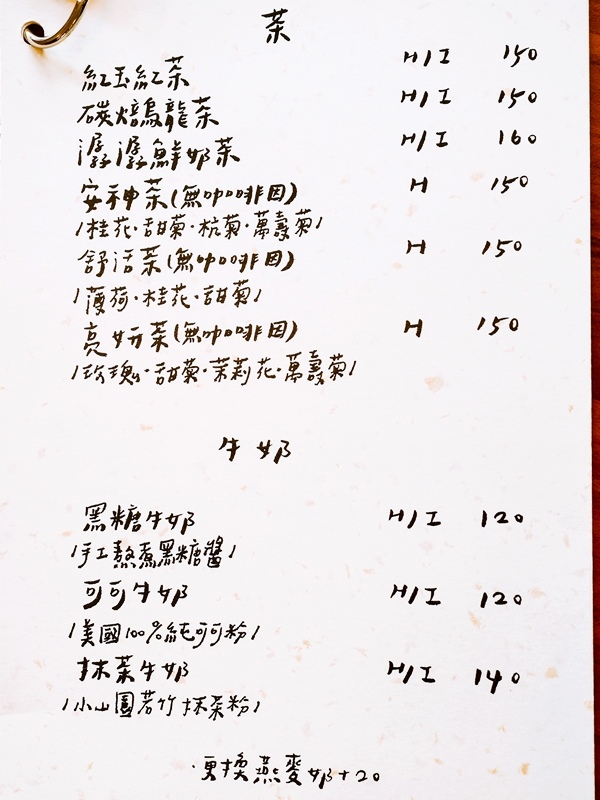 茶
紅玉紅茶 H/I 150
碳焙烏龍茶 H/I 150
潺潺鮮奶茶 H/I 160
安神茶(無咖啡因) H 150
/桂花·甜菊·杭菊·萬壽菊/
舒活茶(無咖啡因) H 150
/薄荷·桂花·甜菊/
亮妍茶(無咖啡因) H 150
/玫瑰·甜菊·茉莉花·萬壽菊/
牛奶
黑糖牛奶 H/I 120
/手工熬煮黑糖醬/
可可牛奶 H/I 120
/美國100%純可可粉/
抹茶牛奶 H/I 140
/小山園若竹抹茶粉/
·更換燕麥奶+20